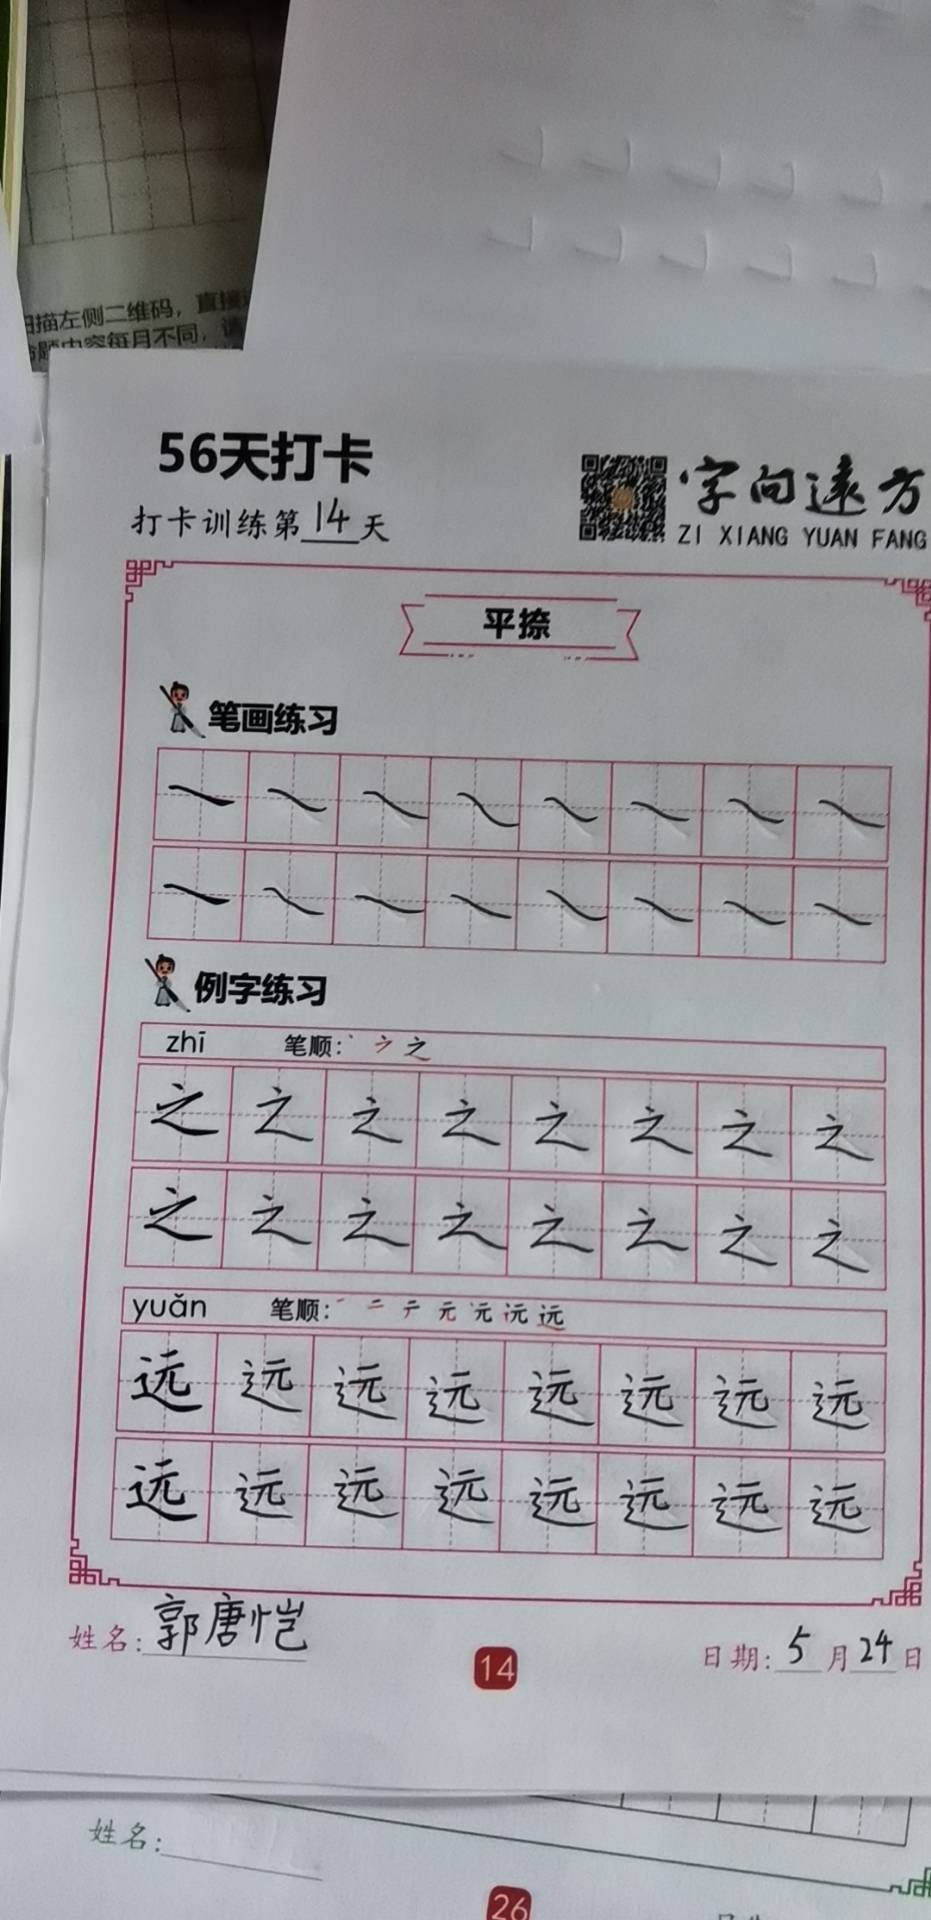 扫描左侧二维码，直接
题内容每月不同，请
56天打卡
打卡训练第14天
字向远方
ZI XIANG YUAN FANG
平捺
笔画练习
例字练习
zhī 笔顺：丶 之
之 之 之 之 之 之 之 之
之 之 之 之 之 之 之 之
yuǎn 笔顺：一 二 テ 元 远
远 远 远 远 远 远 远 远
远 远 远 远 远 远 远 远
姓名：郭唐恺
14
日期：5月24日
姓名：
26